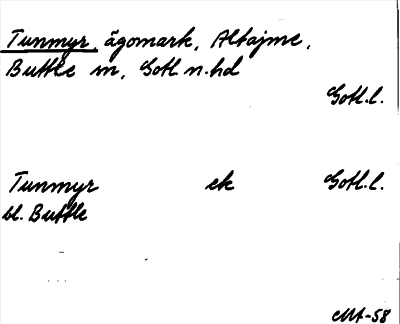 Tunmyr, ägomark, Altajme,
Buttle sn, Gotl. n. hd
Gotl. l.
Tunmyr ek Gotl. l.
bl. Buttle
-58